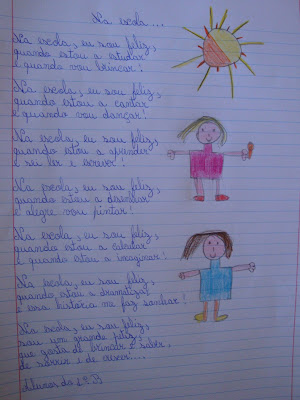 Na escola...
Na escola, eu sou feliz,
quando estou a estudar
e quando vou brincar!
Na escola, eu sou feliz,
quando estou a cantar
e quando vou dançar!
Na escola, eu sou feliz,
quando estou a aprender
e sei ler e escrever!
Na escola, eu sou feliz,
quando estou a desenhar
e alegre vou pintar!
Na escola, eu sou feliz,
quando estou a calcular
e quando estou a imaginar!
Na escola, eu sou feliz,
quando estou a dramatizar
e uma história me faz sonhar!
Na escola, eu sou feliz,
sou um grande petiz,
que gosta de brincar e saber,
de sorrir e de crescer....
Alunos do 4º B